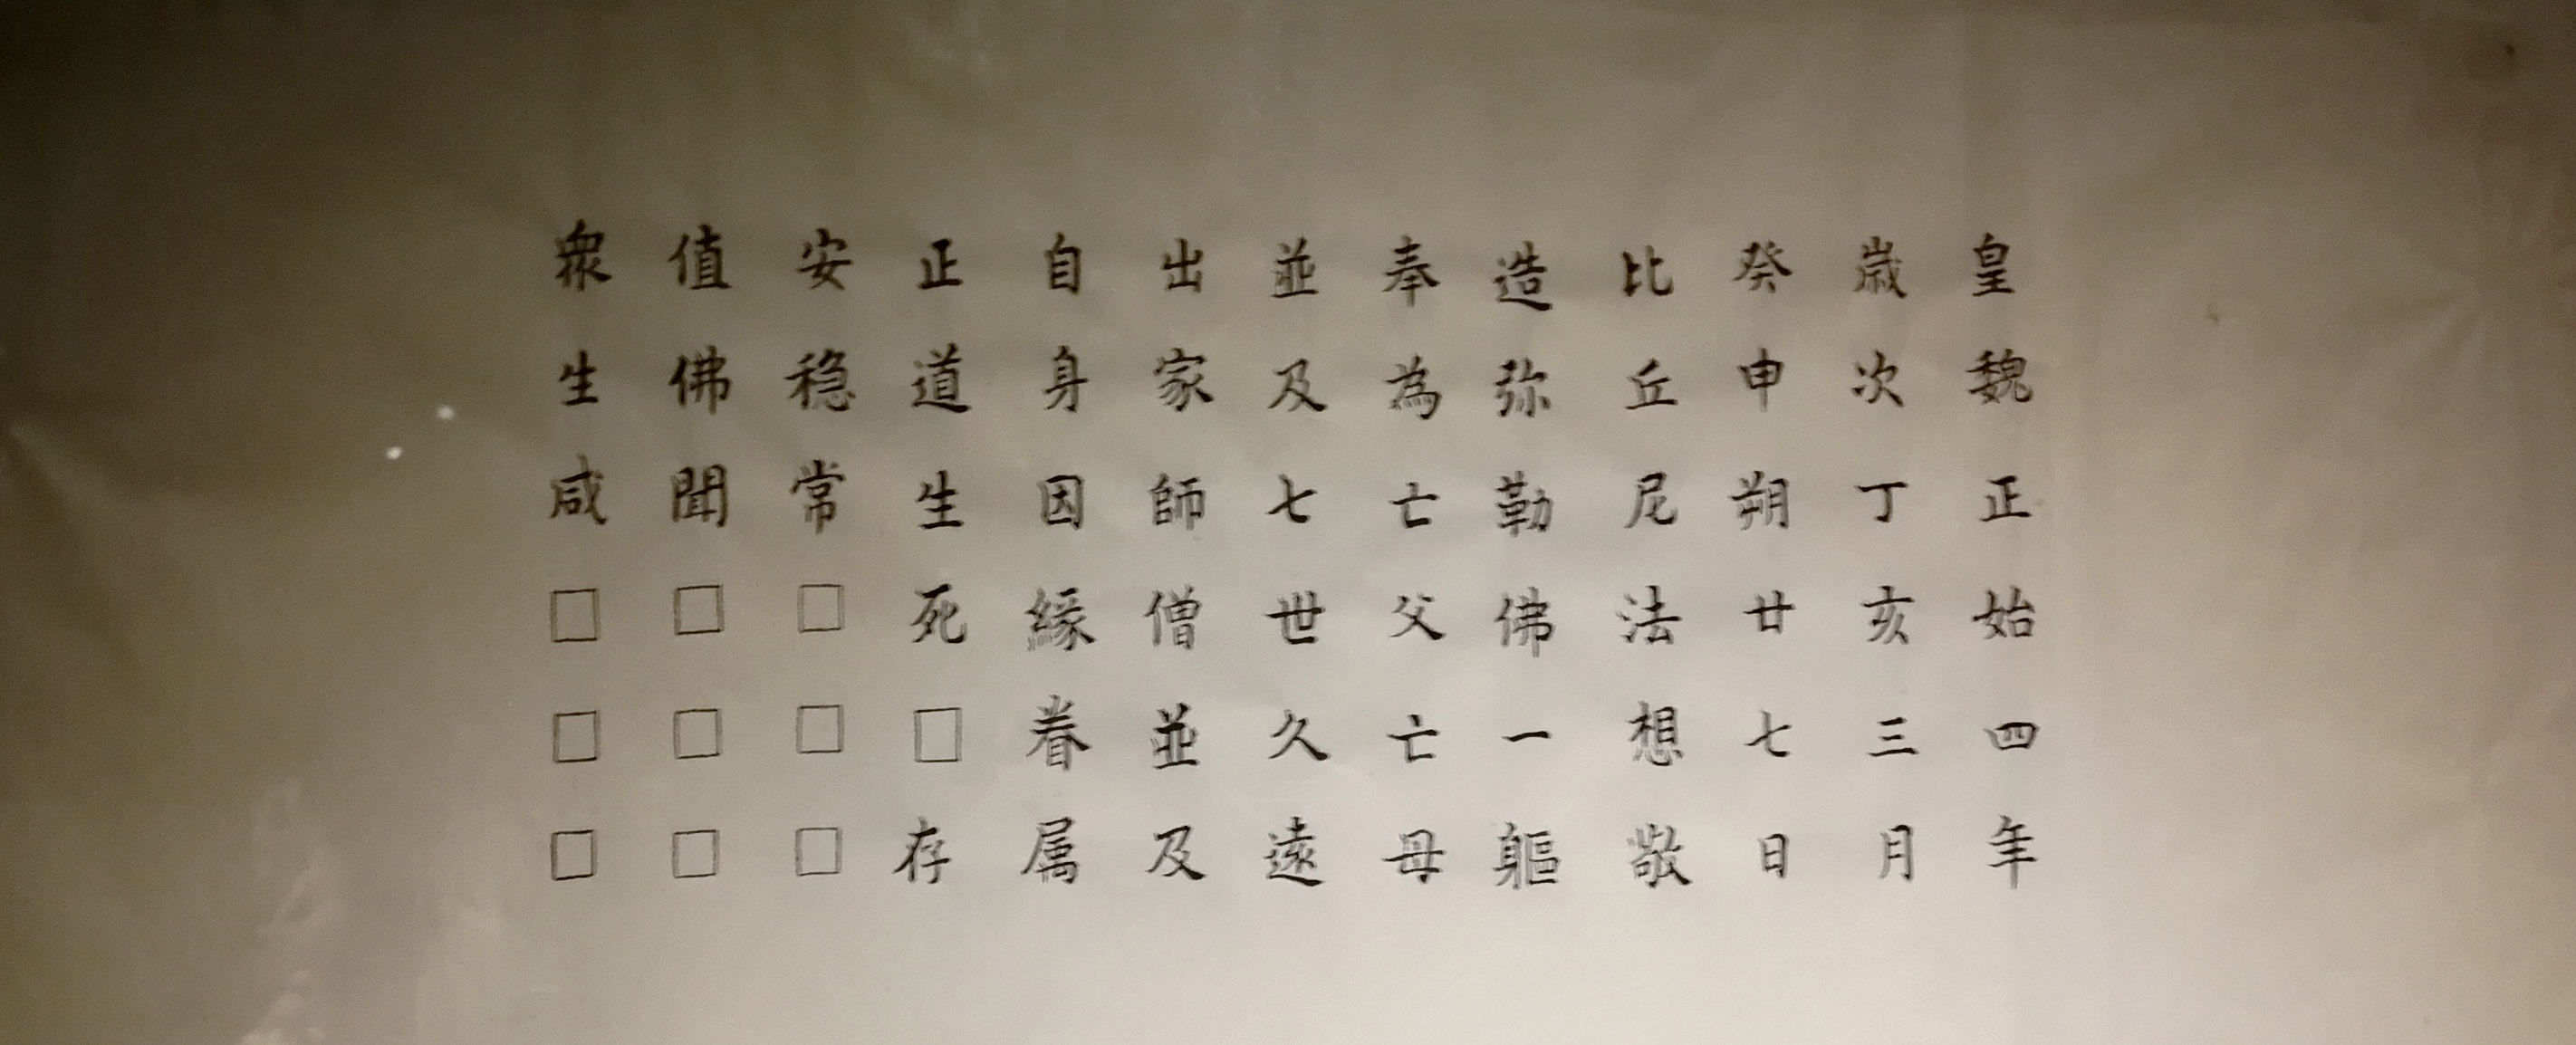 皇魏正始四年
歲次丁亥三月
癸申朔廿七日
比丘尼法想敬
造弥勒佛一軀
奉為亡父亡母
並及七世久遠
出家師僧並及
自身因緣眷属
正道生死□存
安穏常□□□
值佛聞□□□
衆生咸□□□